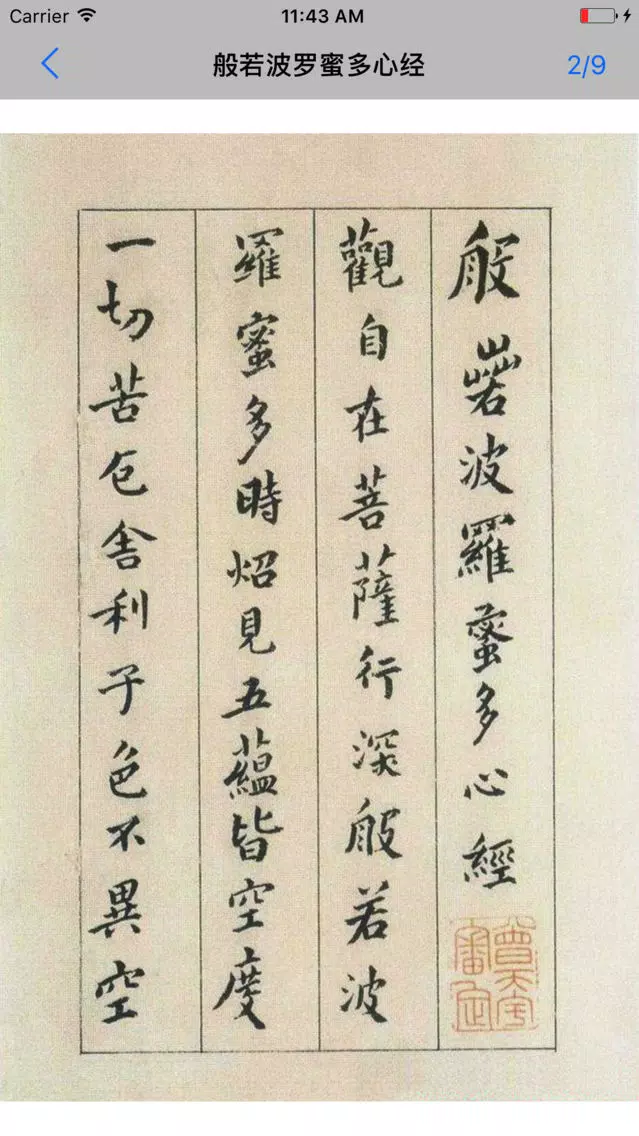 Carrier 11:43 AM
般若波罗蜜多心经 2/9
般若波羅蜜多心經
觀自在菩薩行深般若波
羅蜜多時炤見五蘊皆空度
一切苦厄舍利子色不異空